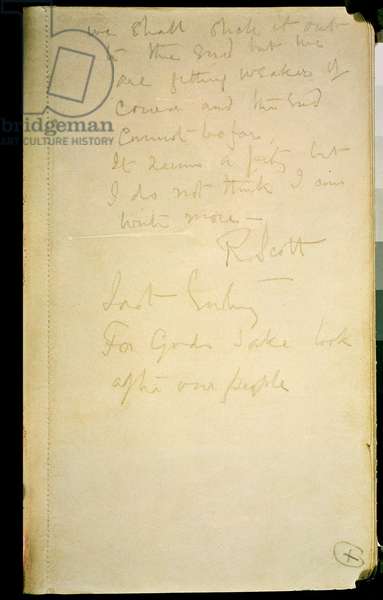 we shall stick it out
to the end but we
are getting weaker of
course and the end
cannot be far.
It seems a pity but
I do not think I can
write more —
R. Scott
Last Entry
For Gods sake look
after our people
bridgeman
ART/CULTURE/HISTORY
bridgeman
ART/CULTURE/HISTORY